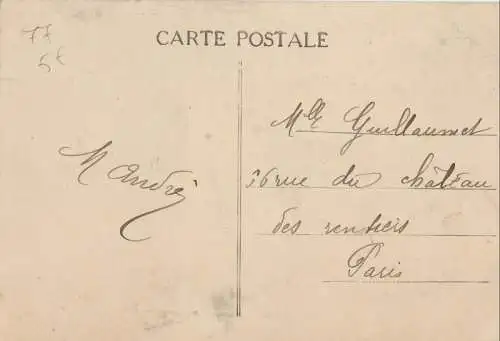 77
5€
CARTE POSTALE
M André
Mlle Guillaumet
16 rue du château
des rentiers
Paris